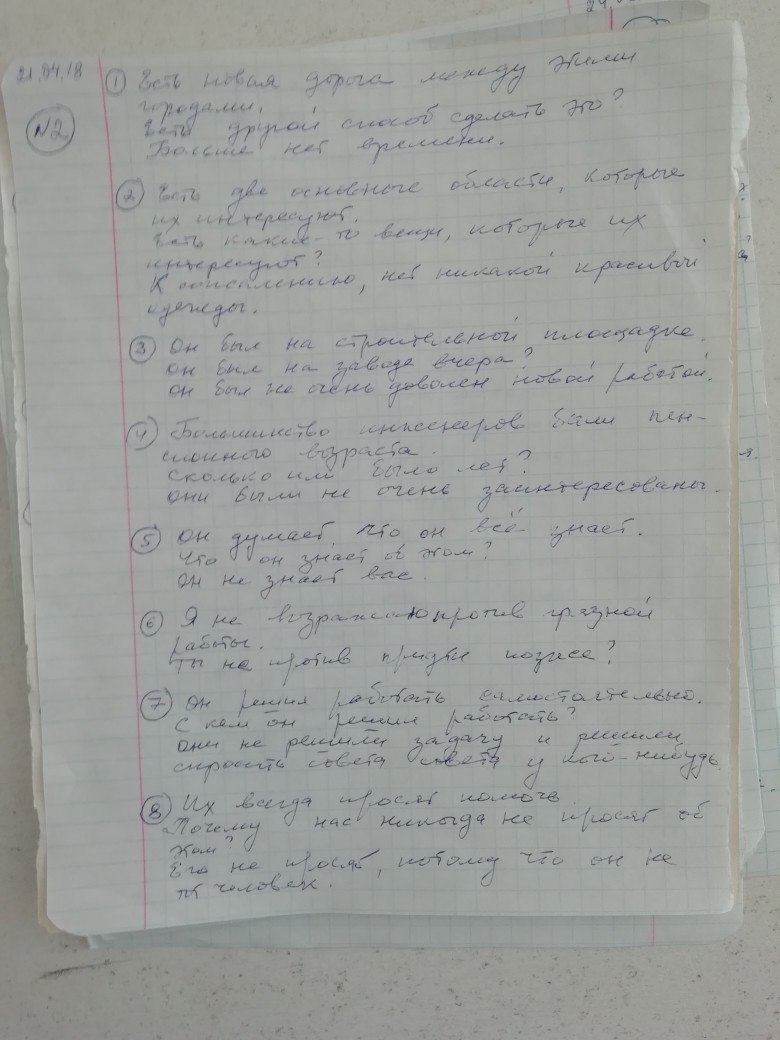 21.04.18
№2
1 Есть новая дорога между этими
городами.
Есть другой способ сделать это?
Больше нет времени.
2 Есть две основные области, которые
их интересуют.
Есть какие-то вещи, которые их
интересуют?
К сожалению, нет никакой красивой
одежды.
3 Он был на строительной площадке.
Он был на заводе вчера?
Он был не очень доволен новой работой.
4 Большинство инженеров были пен-
сионного возраста.
Сколько им было лет?
Они были не очень заинтересованы.
5 Он думает, что он всё знает.
Что он знает об этом?
Он не знает вас.
6 Я не возражаю против грязной
работы.
Ты не против придти позже?
7 Он решил работать самостоятельно.
С кем он решил работать?
Они не решили задачу и решили
спросить совета совета у кого-нибудь
8 Их всегда просят помочь.
Почему нас никогда не просят об
этом?
Его не просят, потому что он не
тот человек.